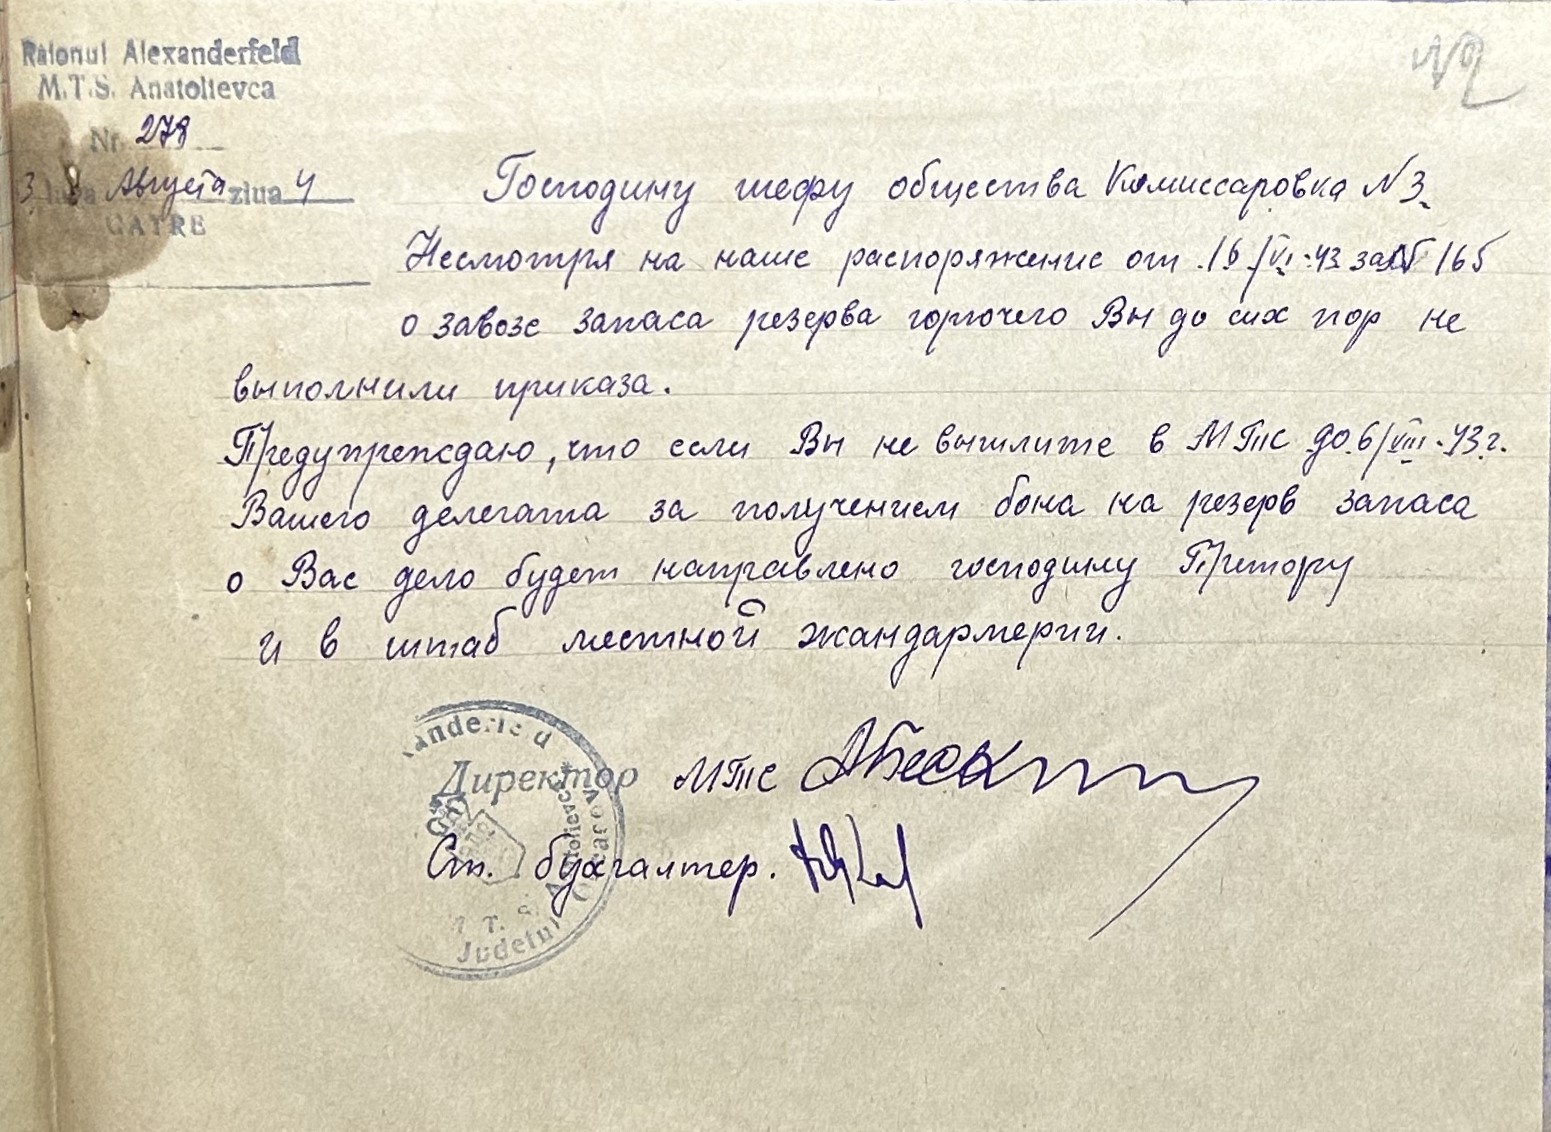 Raionul Alexanderfeld
M.T.S. Anatolievca
Nr. 278
3 luna Августа ziua 4
CATRE
Господину шефу общества Комиссаровка N3.
Несмотря на наше распоряжение от 16/VI-43 за № 165
о завозе запаса резерва горючего Вы до сих пор не
выполнили приказа.
Предупреждаю, что если Вы не вышлите в МТС до 6/VIII-43 г.
Вашего делегата за получением бона на резерв запаса
о Вас дело будет направлено господину Претору
и в штаб местной жандармерии.
Директор МТС
Ст. бухгалтер.
Judetul Anatolievca